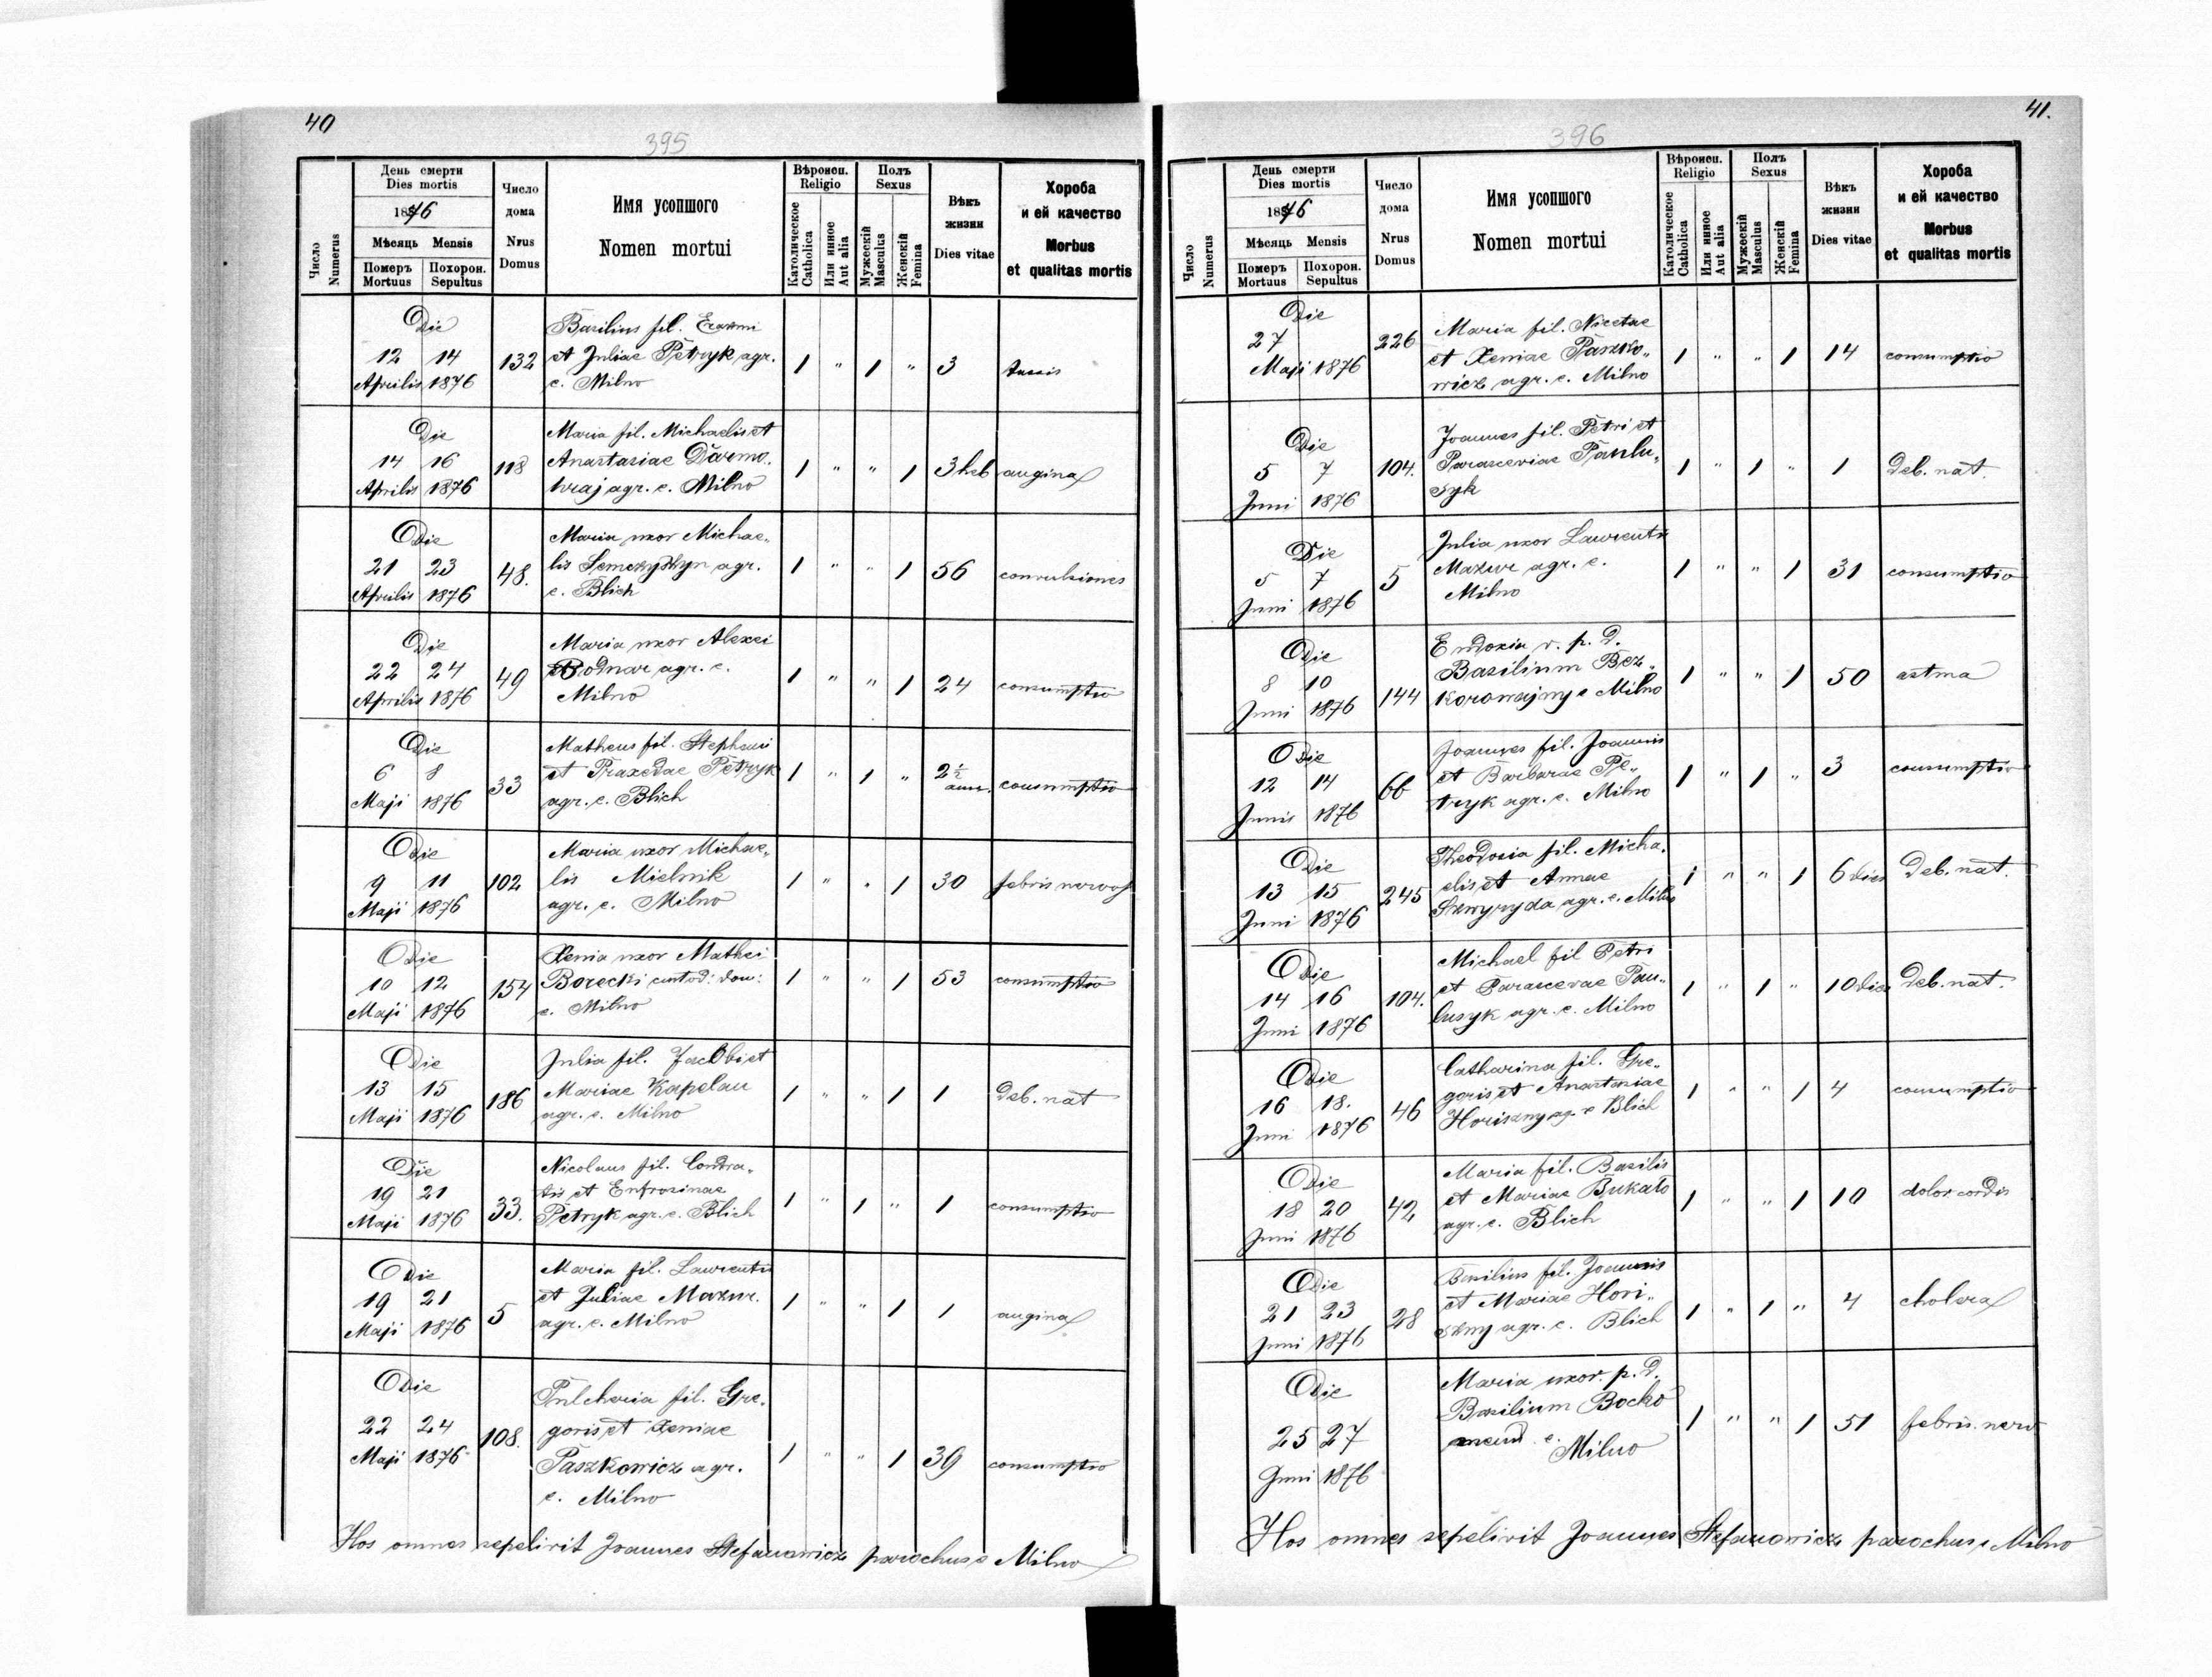 40
395
День смерти
Dies mortis
1876
Мѣсяць Mensis
Число
Numerus
Померъ
Mortuus
Похорон.
Sepultus
Число
дома
Nrus
Domus
Имя усопшого
Nomen mortui
Вѣроисп.
Religio
Католическое
Catholica
Или инное
Aut alia
Полъ
Sexus
Мужескій
Masculus
Женскій
Femina
Вѣкъ
жизни
Dies vitae
Хороба
и ей качество
Morbus
et qualitas mortis
Die
12 14
Aprilis 1876
132
Basilius fil. Erasmi
et Juliae Petryk agr.
e. Milno
1 " 1 " 3 tussis
Die
14 16
Aprilis 1876
118
Maria fil. Michaelis et
Anastasiae Darmo„
hraj agr. e. Milno
1 " " 1 3 heb angina
Die
21 23
Aprilis 1876
48.
Maria uxor Michae„
lis Semczyszyn agr.
e. Blich
1 " " 1 56 convulsiones
Die
22 24
Aprilis 1876
49
Maria uxor Alexei
Bodnar agr. e.
Milno
1 " " 1 24 consumptio
Die
6 8
Maji 1876
33
Matheus fil. Stephani
et Praxedae Petryk
agr. e. Blich
1 " 1 " 2½ ann. consumptio
Die
9 11
Maji 1876
102
Maria uxor Michae„
lis Mielnik
agr. e. Milno
1 " " 1 30 febris nervos
Die
10 12
Maji 1876
154
Xenia uxor Mathei
Borecki custod: dom:
e. Milno
1 " " 1 53 consumptio
Die
13 15
Maji 1876
186
Julia fil. Jacobi et
Mariae Kapelan
agr. e. Milno
1 " " 1 1 Deb. nat
Die
19 21
Maji 1876
33.
Nicolaus fil. Condra„
tis et Eufrosinae
Petryk agr. e. Blich
1 " 1 " 1 consumptio
Die
19 21
Maji 1876
5
Maria fil. Laurentii
et Juliae Mazur.
agr. e. Milno
1 " " 1 1 angina
Die
22 24
Maji 1876
108.
Pulcheria fil. Gre„
goris et Xeniae
Paszkowicz agr.
e. Milno
1 " " 1 39 consumptio
Hos omnes sepelivit Joannes Stefanowicz parochus e Milno
41.
396
День смерти
Dies mortis
1876
Мѣсяць Mensis
Число
Numerus
Померъ
Mortuus
Похорон.
Sepultus
Число
дома
Nrus
Domus
Имя усопшого
Nomen mortui
Вѣроисп.
Religio
Католическое
Catholica
Или инное
Aut alia
Полъ
Sexus
Мужескій
Masculus
Женскій
Femina
Вѣкъ
жизни
Dies vitae
Хороба
и ей качество
Morbus
et qualitas mortis
Die
27
Maji 1876
226
Maria fil. Nicetae
et Xeniae Paszko„
wicz agr. e. Milno
1 " " 1 14 consumptio
Die
5 7
Juni 1876
104.
Joannes fil. Petri et
Parasceviae Paulu„
syk
1 " 1 " 1 Deb. nat.
Die
5 7
Juni 1876
5
Julia uxor Laurentii
Mazur agr. e.
Milno
1 " " 1 31 consumptio
Die
8 10
Juni 1876
144
Eudoxia v. p. D.
Basilium Bez„
korowajny e Milno
1 " " 1 50 astma
Die
12 14
Junis 1876
66
Joannes fil. Joannis
et Barbarae Pe„
tryk agr. e. Milno
1 " 1 " 3 consumptio
Die
13 15
Juni 1876
245
Theodosia fil. Micha„
elis et Annae
Skwyryda agr. e. Milno
1 " " 1 6 dies Deb. nat.
Die
14 16
Juni 1876
104.
Michael fil Petri
et Parascevae Pau„
lusyk agr. e. Milno
1 " 1 " 10 dies Deb. nat.
Die
16 18.
Juni 1876
46
Catharina fil. Gre„
goris et Anastasiae
Horiszny ag. e Blich
1 " " 1 4 consumptio
Die
18 20
Juni 1876
42
Maria fil. Basilis
et Mariae Bukato
agr. e. Blich
1 " " 1 10 dolor cordis
Die
21 23
Juni 1876
28
Basilius fil. Joannis
et Mariae Hori„
szny agr. e. Blich
1 " 1 " 4 cholera
Die
25 27
Juni 1876
Maria uxor. p. D.
Basilium Bocko
mend. e.
Milno
1 " " 1 51 febris. nerv
Hos omnes sepelivit Joannes Stefanowicz parochus e Milno